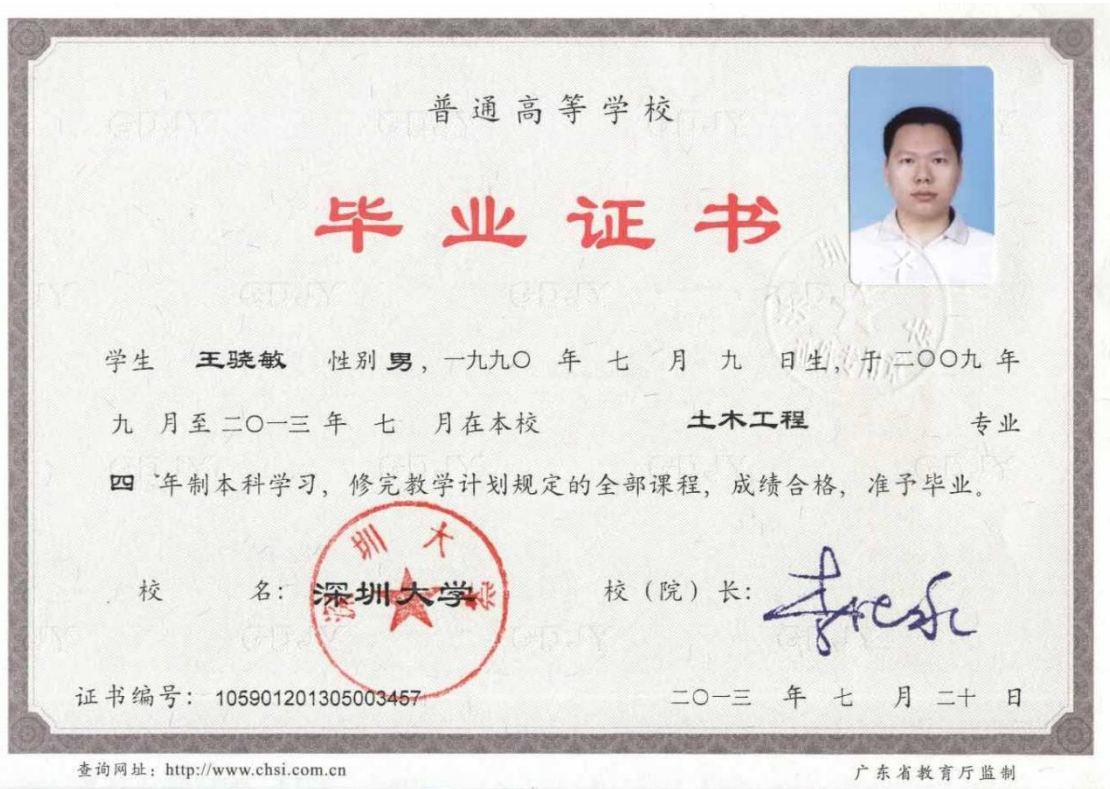 普通高等学校
毕业证书
学生 王骁敏 性别 男，一九九〇 年 七 月 九 日生，于 二〇〇九 年
九 月至 二〇一三 年 七 月在本校 土木工程 专业
四 年制本科学习，修完教学计划规定的全部课程，成绩合格，准予毕业。
校 名：深圳大学 校（院）长：
深圳大学
证书编号：105901201305003457 二〇一三 年 七 月 二十 日
查询网址：http://www.chsi.com.cn 广东省教育厅监制